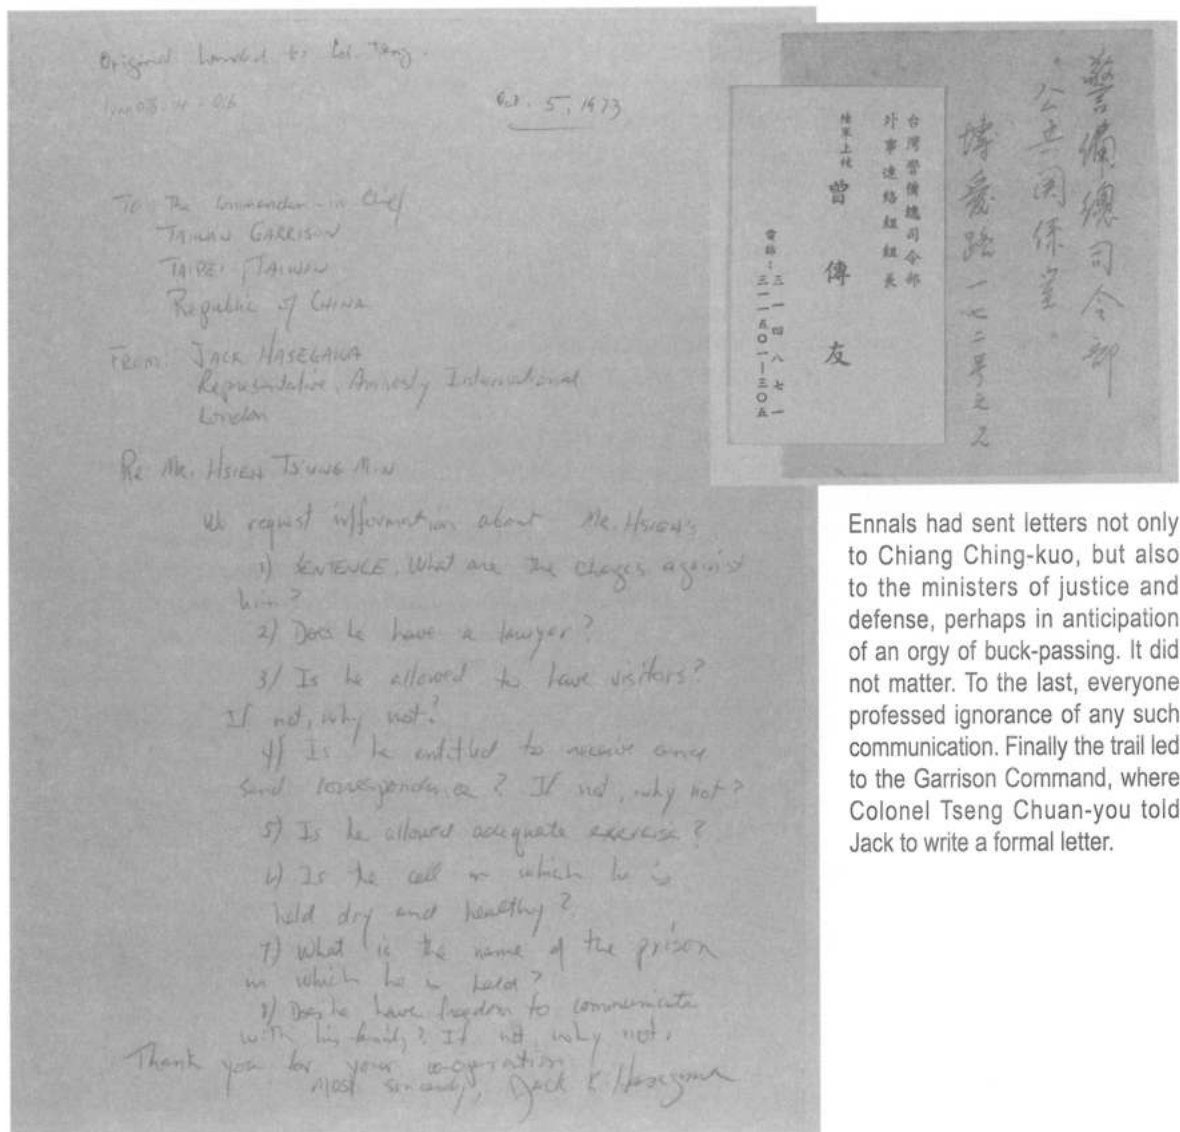 Original handed to Col. Teng.
Oct. 5, 1973
To The Commander-in Chief
TAIWAN GARRISON
TAIPEI, TAIWAN
Republic of CHINA
FROM: JACK HASEGAWA
Representative, Amnesty International
London
Re Mr. HSIEH TS'UNG MIN
We request information about Mr. HSIEH'S
1) SENTENCE. What are the charges against
him?
2) Does he have a lawyer?
3) Is he allowed to have visitors?
If not, why not?
4) Is he entitled to receive and
send correspondence? If not, why not?
5) Is he allowed adequate exercise?
6) Is the cell in which he is
held dry and healthy?
7) What is the name of the prison
in which he is held?
8) Does he have freedom to communicate
with his family? If not why not.
Thank you for your cooperation
Most sincerely, Jack K Hasegawa
警備總司令部
公共関係室。
博愛路一七二号之
台灣警備總司令部
外事連絡組組長
陸軍上校
曾傳友
電話：三一四八七一
三一一五〇一－三〇五
Ennals had sent letters not only
to Chiang Ching-kuo, but also
to the ministers of justice and
defense, perhaps in anticipation
of an orgy of buck-passing. It did
not matter. To the last, everyone
professed ignorance of any such
communication. Finally the trail led
to the Garrison Command, where
Colonel Tseng Chuan-you told
Jack to write a formal letter.